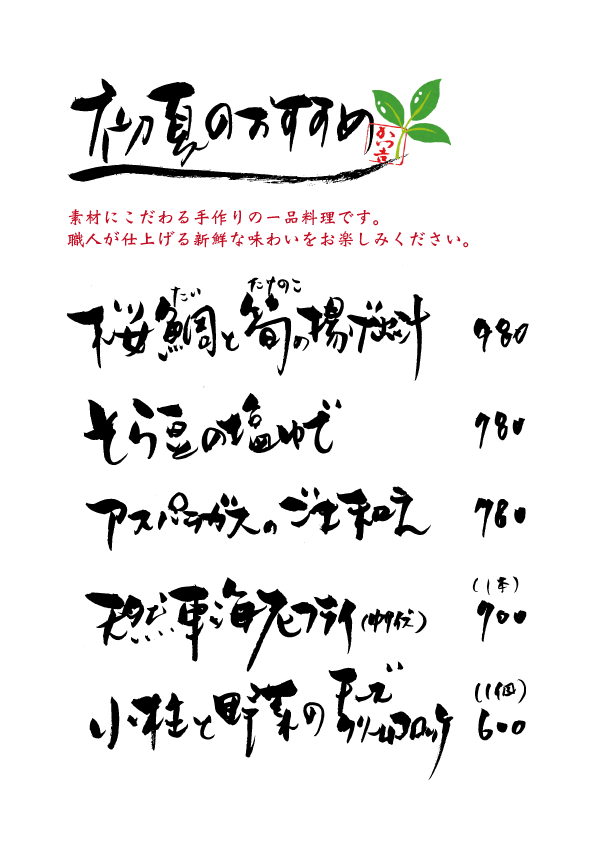 初夏のおすすめ
かつ吉
素材にこだわる手作りの一品料理です。
職人が仕上げる新鮮な味わいをお楽しみください。
だい たけのこ
桜鯛と筍の揚げ出汁 980
そら豆の塩ゆで 780
アスパラガスのジュレ和え 780
(1本)
天然車海老フライ 900
(1個)
小柱と野菜のチーズクリームコロッケ 600